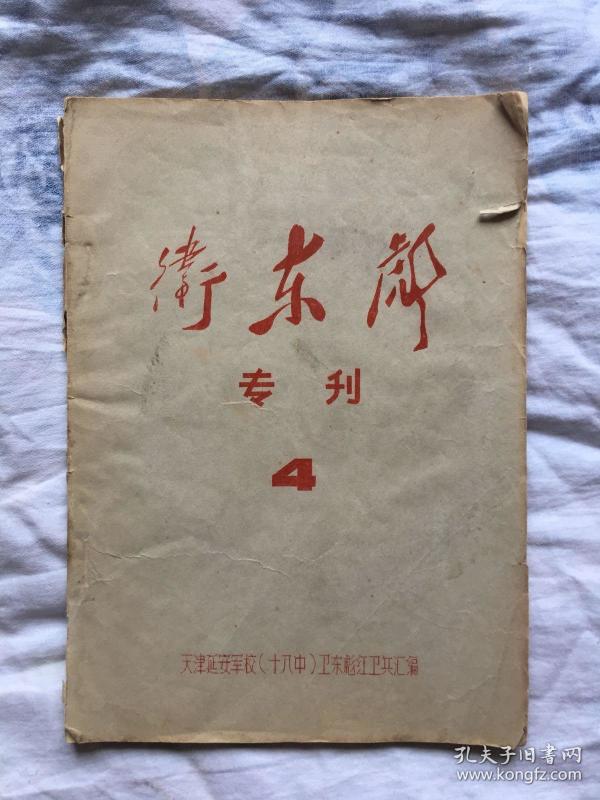 衛东彪
专刊
4
天津延安军校(十八中)卫东彪红卫兵汇编
孔夫子旧書网
www.kongfz.com